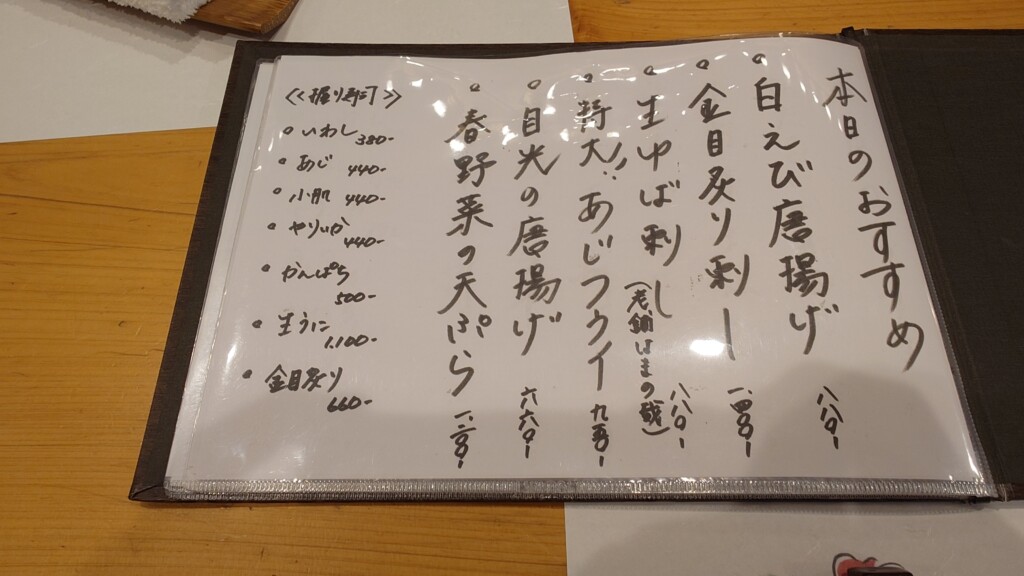 本日のおすすめ
白えび唐揚げ 八八〇-
金目炙り刺し 一.四〇〇-
生ゆば刺し 八八〇-
特大!! あじフライ 九五〇-
目光の唐揚げ 六六〇-
春野菜の天ぷら 一.二〇〇-
《握り寿司》
いわし 380-
あじ 440-
小肌 440-
やりいか 440-
かんぱち 500-
生うに 1.100-
金目炙り 660-